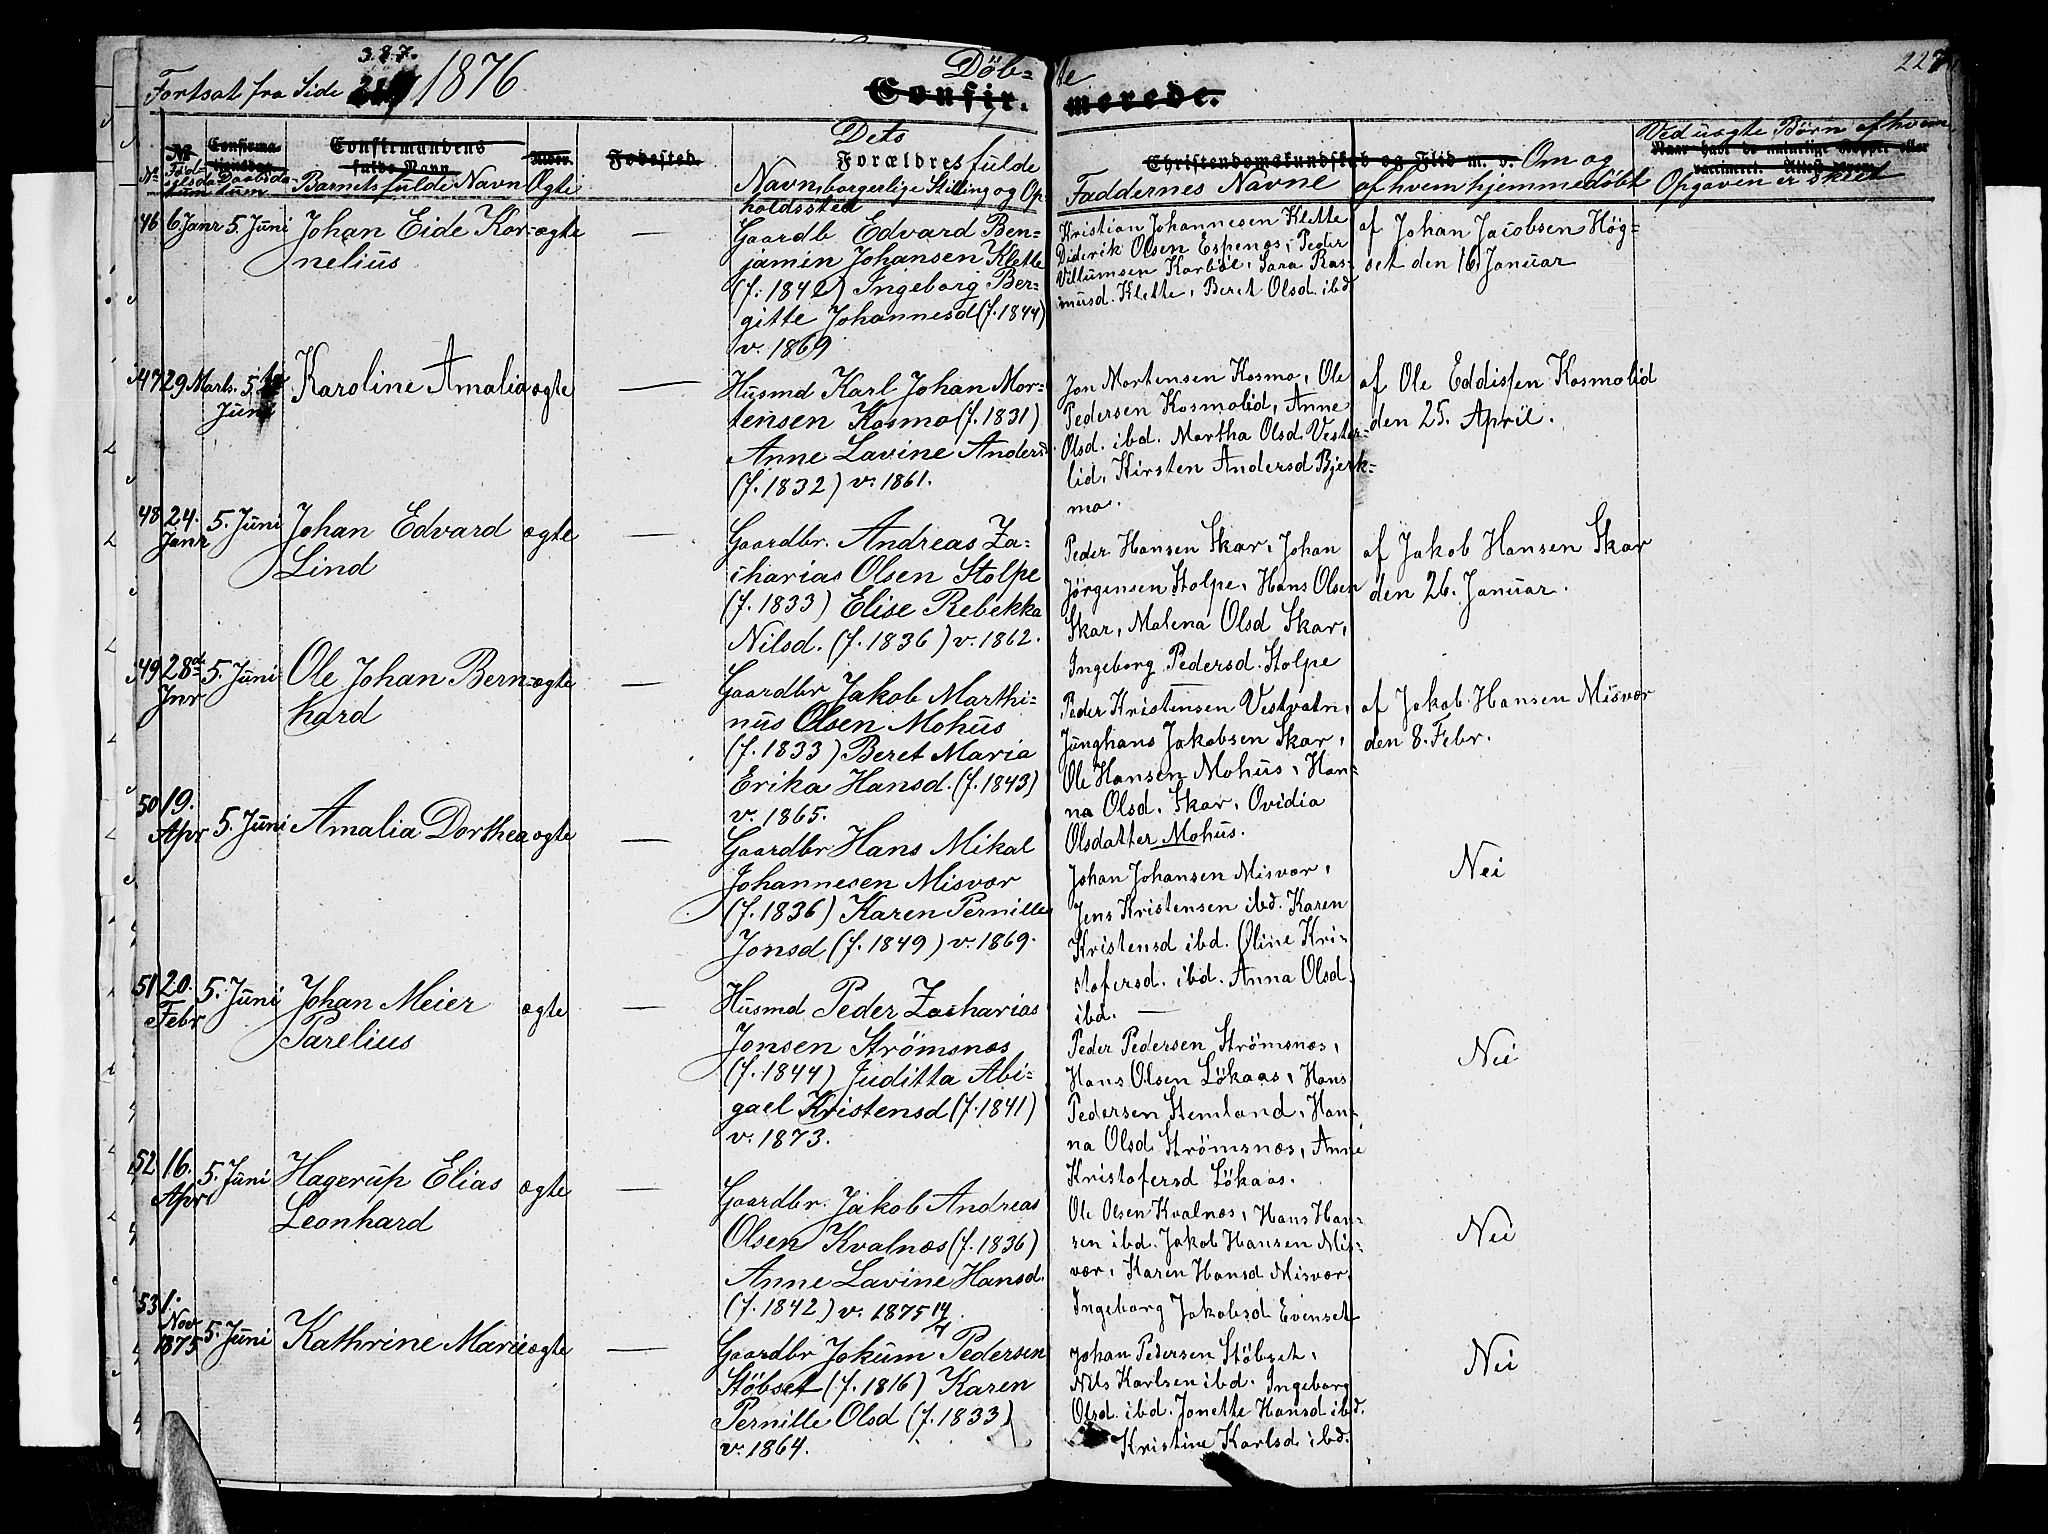 387.
Fortsat fra Side 1876
Döb-
te
227
Confir.
merede.
Nr.
Fød-
selsda-
tum
Confirma-
tionsdag.
Daabsda-
tum
Confirmandens
fulde Navn
Barnets fulde Navn
Alder.
Ægte
Fødested.
Dets
Forældres fulde
Navn, borgerlige Stilling og Op-
holdssted
Christendomskundskab og Flid m. v.
Faddernes Navne
Om og
af hvem hjemmedøbt
Ved uægte Børn af hvem
Opgaven er skeet
46 6. Janr 5. Juni Johan Eide Kor- ægte —
nelius
Gaardb Edvard Ben-
jamin Johansen Klette
(f. 1842) Ingeborg Ber-
gitte Johannesd (f. 1844)
v. 1869
Kristian Johannesen Klette
Diderik Olsen Espenæs, Peder
Villumsen Karböl, Sara Ras-
musd. Klette, Beret Olsd. ibd
af Johan Jacobsen Hög-
set den 16. Januar
47 29 Marts. 5.
Juni
Karoline Amalia ægte —
Husmd Karl Johan Mor-
tensen Kosmo (f. 1831)
Anne Lavine Andersd.
(f. 1832) v. 1861.
Jon Mortensen Kosmo, Ole
Pedersen Kosmolid, Anne
Olsd. ibd. Martha Olsd. Vester-
lid, Kirsten Andersd Bjerk-
mo.
af Ole Eddissen Kosmolid
den 25. April.
48 24. Janr 5. Juni Johan Edvard ægte —
Lind
Gaardbr. Andreas Za-
charias Olsen Stolpe
(f. 1833) Elise Rebekka
Nilsd. (f. 1836) v. 1862.
Peder Hansen Skar, Johan
Jörgensen Stolpe, Hans Olsen
Skar, Malena Olsd Skar,
Ingeborg Pedersd. Stolpe
af Jakob Hansen Skar
den 26. Januar.
49 28de Jnr 5. Juni Ole Johan Bern- ægte —
hard
Gaardbr Jakob Marthi-
nus Olsen Mohus
(f. 1833) Beret Maria
Erika Hansd. (f. 1843)
v. 1865.
Peder Kristensen Vestvatn,
Junghans Jakobsen Skar,
Ole Hansen Mohus, Han-
na Olsd. Skar, Ovidia
Olsdatter Mohus.
af Jakob Hansen Misvær
den 8. Febr.
50 19. Apr 5. Juni Amalia Dorthea ægte —
Gaardbr Hans Mikal
Johannesen Misvær
(f. 1836) Karen Pernille
Jonsd (f. 1849) v. 1869.
Johan Johansen Misvær,
Jens Kristensen ibd. Karen
Kristensd ibd. Oline Kri-
stofersd. ibd. Anna Olsd.
ibd. —
Nei
51 20. Febr 5. Juni Johan Meier ægte —
Parelius
Husmd Peder Zacharias
Jonsen Strömsnæs
(f. 1844) Juditta Abi-
gael Kristensd (f. 1841)
v. 1873.
Peder Pedersen Strömsnæs,
Hans Olsen Lökaas, Hans
Pedersen Stemland, Han-
na Olsd Strömsnæs, Anne
Kristofersd Lökaas.
Nei
52 16. Apr 5. Juni Hagerup Elias ægte —
Leonhard
Gaardbr. Jakob Andreas
Olsen Kvalnæs (f. 1836)
Anne Lavine Hansd.
(f. 1842) v. 1875 14/7
Ole Olsen Kvalnæs, Hans Han-
sen ibd. Jakob Hansen Mis-
vær, Karen Hansd Misvær,
Ingeborg Jakobsd Evenset
Nei
53 1. Nov 1875 5. Juni Kathrine Marie ægte —
Gaardbr Jokum Pedersen
Stöbset (f. 1816) Karen
Pernille Olsd (f. 1833)
v. 1864.
Johan Pedersen Stöbset,
Nils Karlsen ibd. Ingeborg
Olsd. ibd. Jonette Hansd ibd.
Kristine Karlsd ibd.
Nei